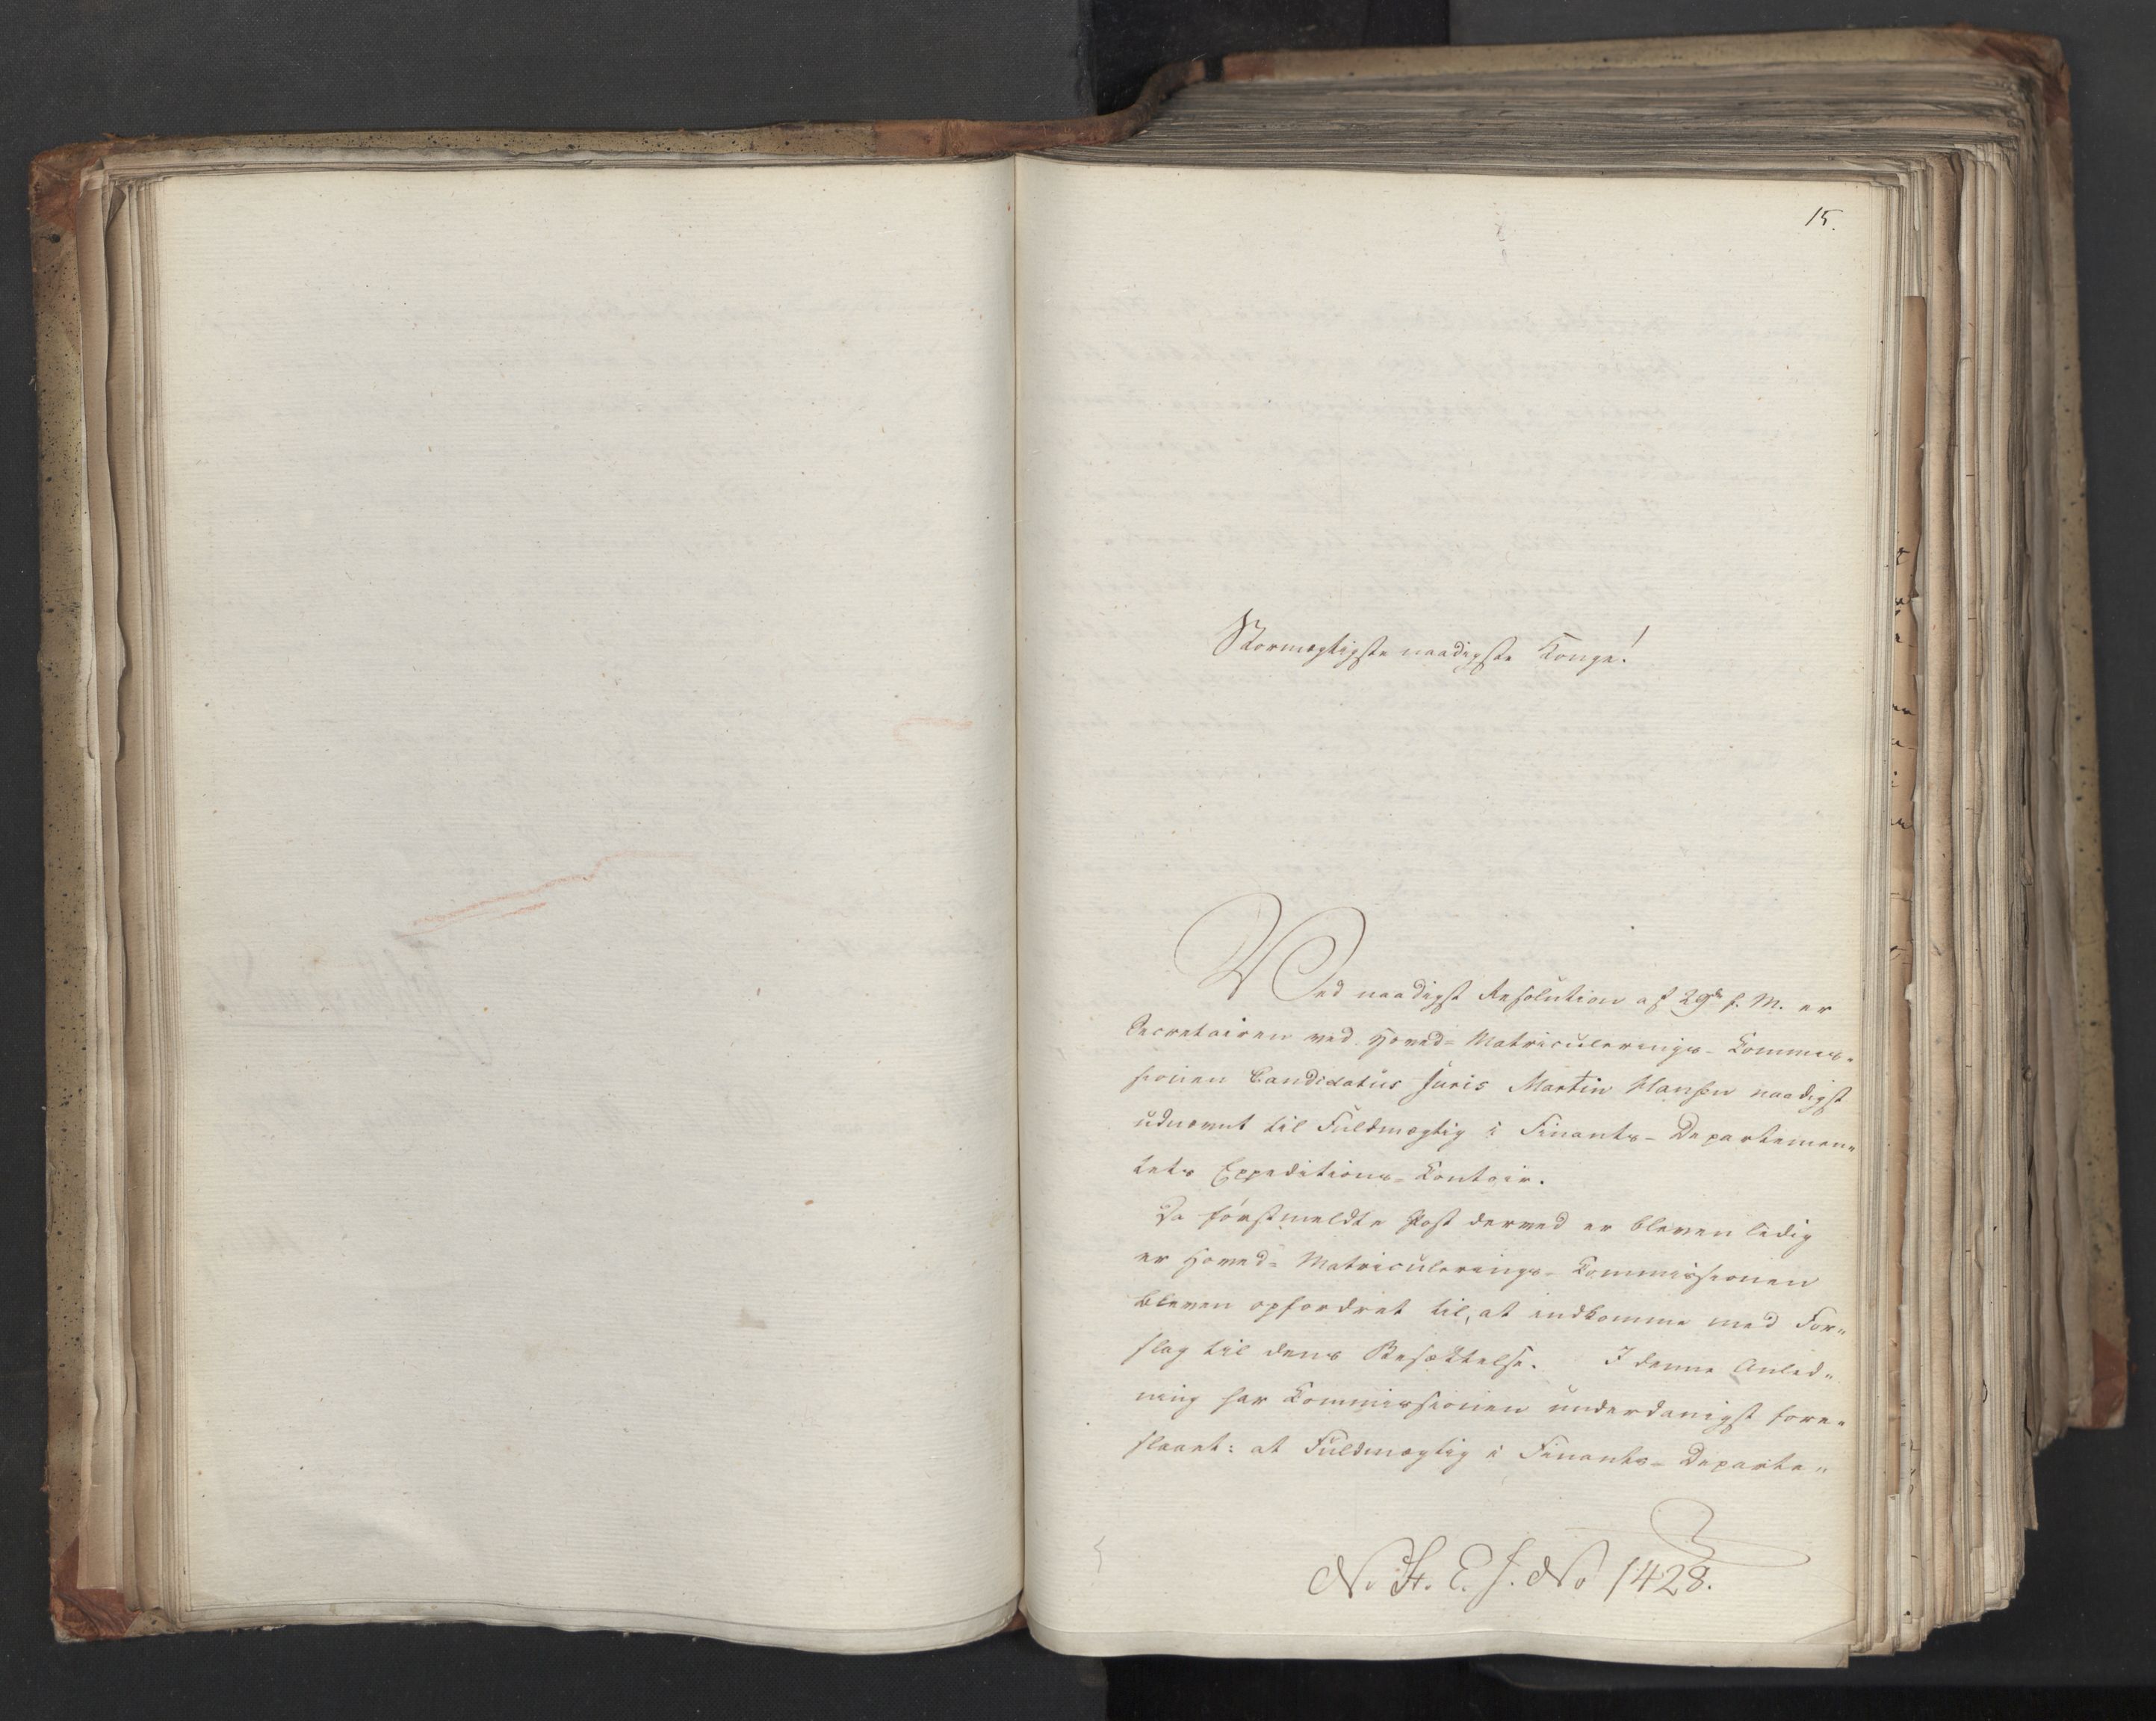 15.
Stormægtigste naadigste Konge!
Ved naadigst Resolution af 29de f. M. er
Secretairen ved Hoved- Matriculerings- Commis-
sionen Candidatus Juris Martin Hansen naadigst
udnævnt til Fuldmægtig i Finants- Departemen-
tets Expeditions- Contoir.
Da förstmeldte Post derved er bleven ledig
er Hoved- Matriculerings- Commissionen
bleven opfordret til, at indkomme med For-
slag til dens Besættelse. I denne Anled-
ning har Commissionen underdanigst fore-
slaaet: at Fuldmægtig i Finants- Departe-
N. H. E. J. No 1428.